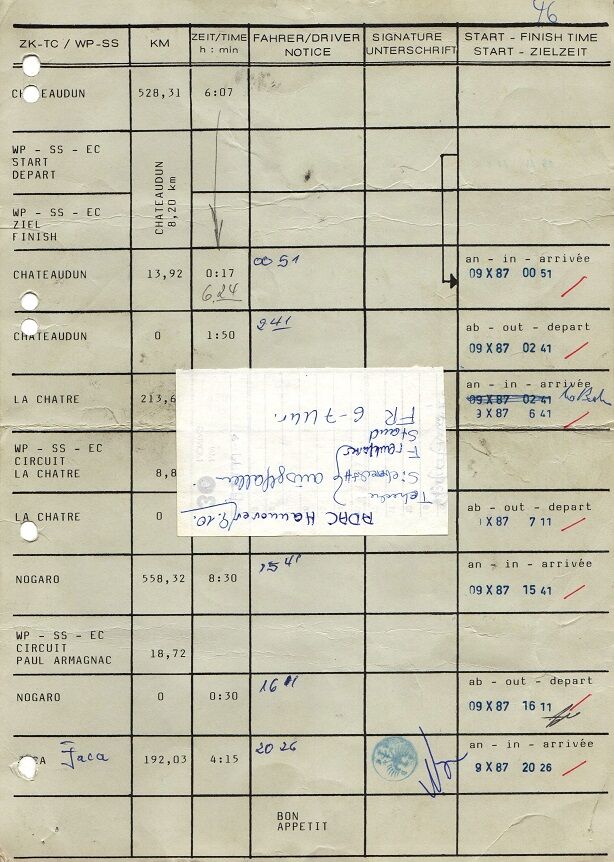 46
ZK-TC / WP-SS KM ZEIT/TIME h : min FAHRER/DRIVER NOTICE SIGNATURE UNTERSCHRIFT START - FINISH TIME START - ZIELZEIT
CHATEAUDUN 528,31 6:07
WP - SS - EC
START
DEPART
CHATEAUDUN
8,20 km
WP - SS - EC
ZIEL
FINISH
an - in - arrivée
CHATEAUDUN 13,92 0:17 09 X 87 00 51
6.24
ab - out - depart
CHATEAUDUN 0 1:50 09 X 87 02 41
an - in - arrivée
09 X 87 02 41
LA CHATRE 213,6 9 X 87 6 41
WP - SS - EC
CIRCUIT
LA CHATRE 8,8
ADAC Hannover 9.10.
ausgefallen
Stand
FR 6-7 Uhr.
ab - out - depart
LA CHATRE 0 X 87 7 11
an - in - arrivée
NOGARO 558,32 8:30 09 X 87 15 41
WP - SS - EC
CIRCUIT
PAUL ARMAGNAC 18,72
ab - out - depart
NOGARO 0 0:30 09 X 87 16 11
an - in - arrivée
Jaca 192,03 4:15 20 26 9 X 87 20 26
BON
APPETIT